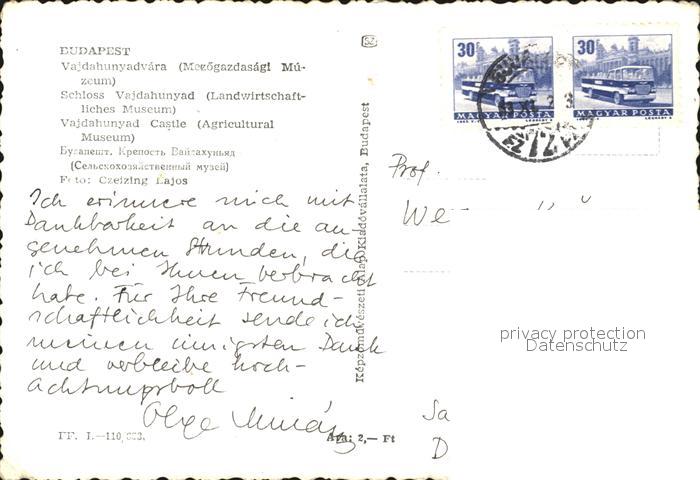 BUDAPEST
Vajdahunyadvára (Mezőgazdasági Mú-
zeum)
Schloss Vajdahunyad (Landwirtschaft-
liches Museum)
Vajdahunyad Castle (Agricultural
Museum)
Будапешт. Крепость Вайдахуньяд
(Сельскохозяйственный музей)
Foto: Czeizing Lajos
Ich erinnere mich mit
Dankbarkeit an die an-
genehmen Stunden, die
ich bei Ihnen verbracht
habe. Für Ihre Freund-
schaftlichkeit sende ich
meinen innigsten Dank
und verbleibe hoch-
achtungsvoll
Olga
FF. I.—110,
Ára: 2,— Ft
Képzőművészeti Alap Kiadóvállalata, Budapest
SZ
30f
MAGYAR POSTA
30f
MAGYAR POSTA
Prof.
We
privacy protection
Datenschutz
Sa
D